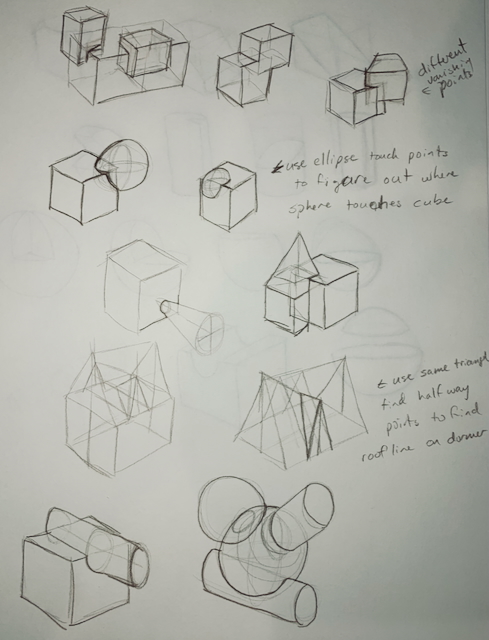 different
vanishing
← points
← use ellipse touch points
to figure out where
sphere touches cube
← use same triangl
find halfway
points to find
roof line on dormer